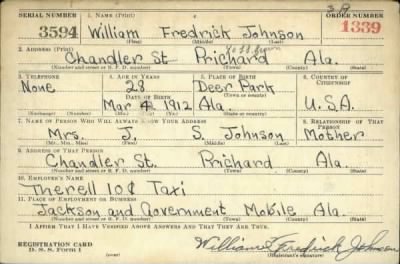 SERIAL NUMBER 1. NAME (Print) ORDER NUMBER
3594 William Fredrick Johnson 1339
(First) (Middle) (Last)
2. ADDRESS (Print)
Chandler St Prichard Ala.
(Number and street or R. F. D. number) (Town) (County) (State)
3. TELEPHONE 4. AGE IN YEARS 5. PLACE OF BIRTH 6. COUNTRY OF CITIZENSHIP
None 28 Deer Park
DATE OF BIRTH (Town or county)
Mar 4 1912 Ala. U.S.A.
(Exchange) (Number) (Mo.) (Day) (Yr.) (State or country)
7. NAME OF PERSON WHO WILL ALWAYS KNOW YOUR ADDRESS 8. RELATIONSHIP OF THAT PERSON
Mrs. J. S. Johnson Mother
(Mr., Mrs., Miss) (First) (Middle) (Last)
9. ADDRESS OF THAT PERSON
Chandler St. Prichard Ala.
(Number and street or R. F. D. number) (Town) (County) (State)
10. EMPLOYER'S NAME
Therell 10¢ Taxi
11. PLACE OF EMPLOYMENT OR BUSINESS
Jackson and Government Mobile Ala.
(Number and street or R. F. D. number) (Town) (County) (State)
I AFFIRM THAT I HAVE VERIFIED ABOVE ANSWERS AND THAT THEY ARE TRUE.
REGISTRATION CARD
D. S. S. Form 1 William Fredrick Johnson
(Registrant's signature)